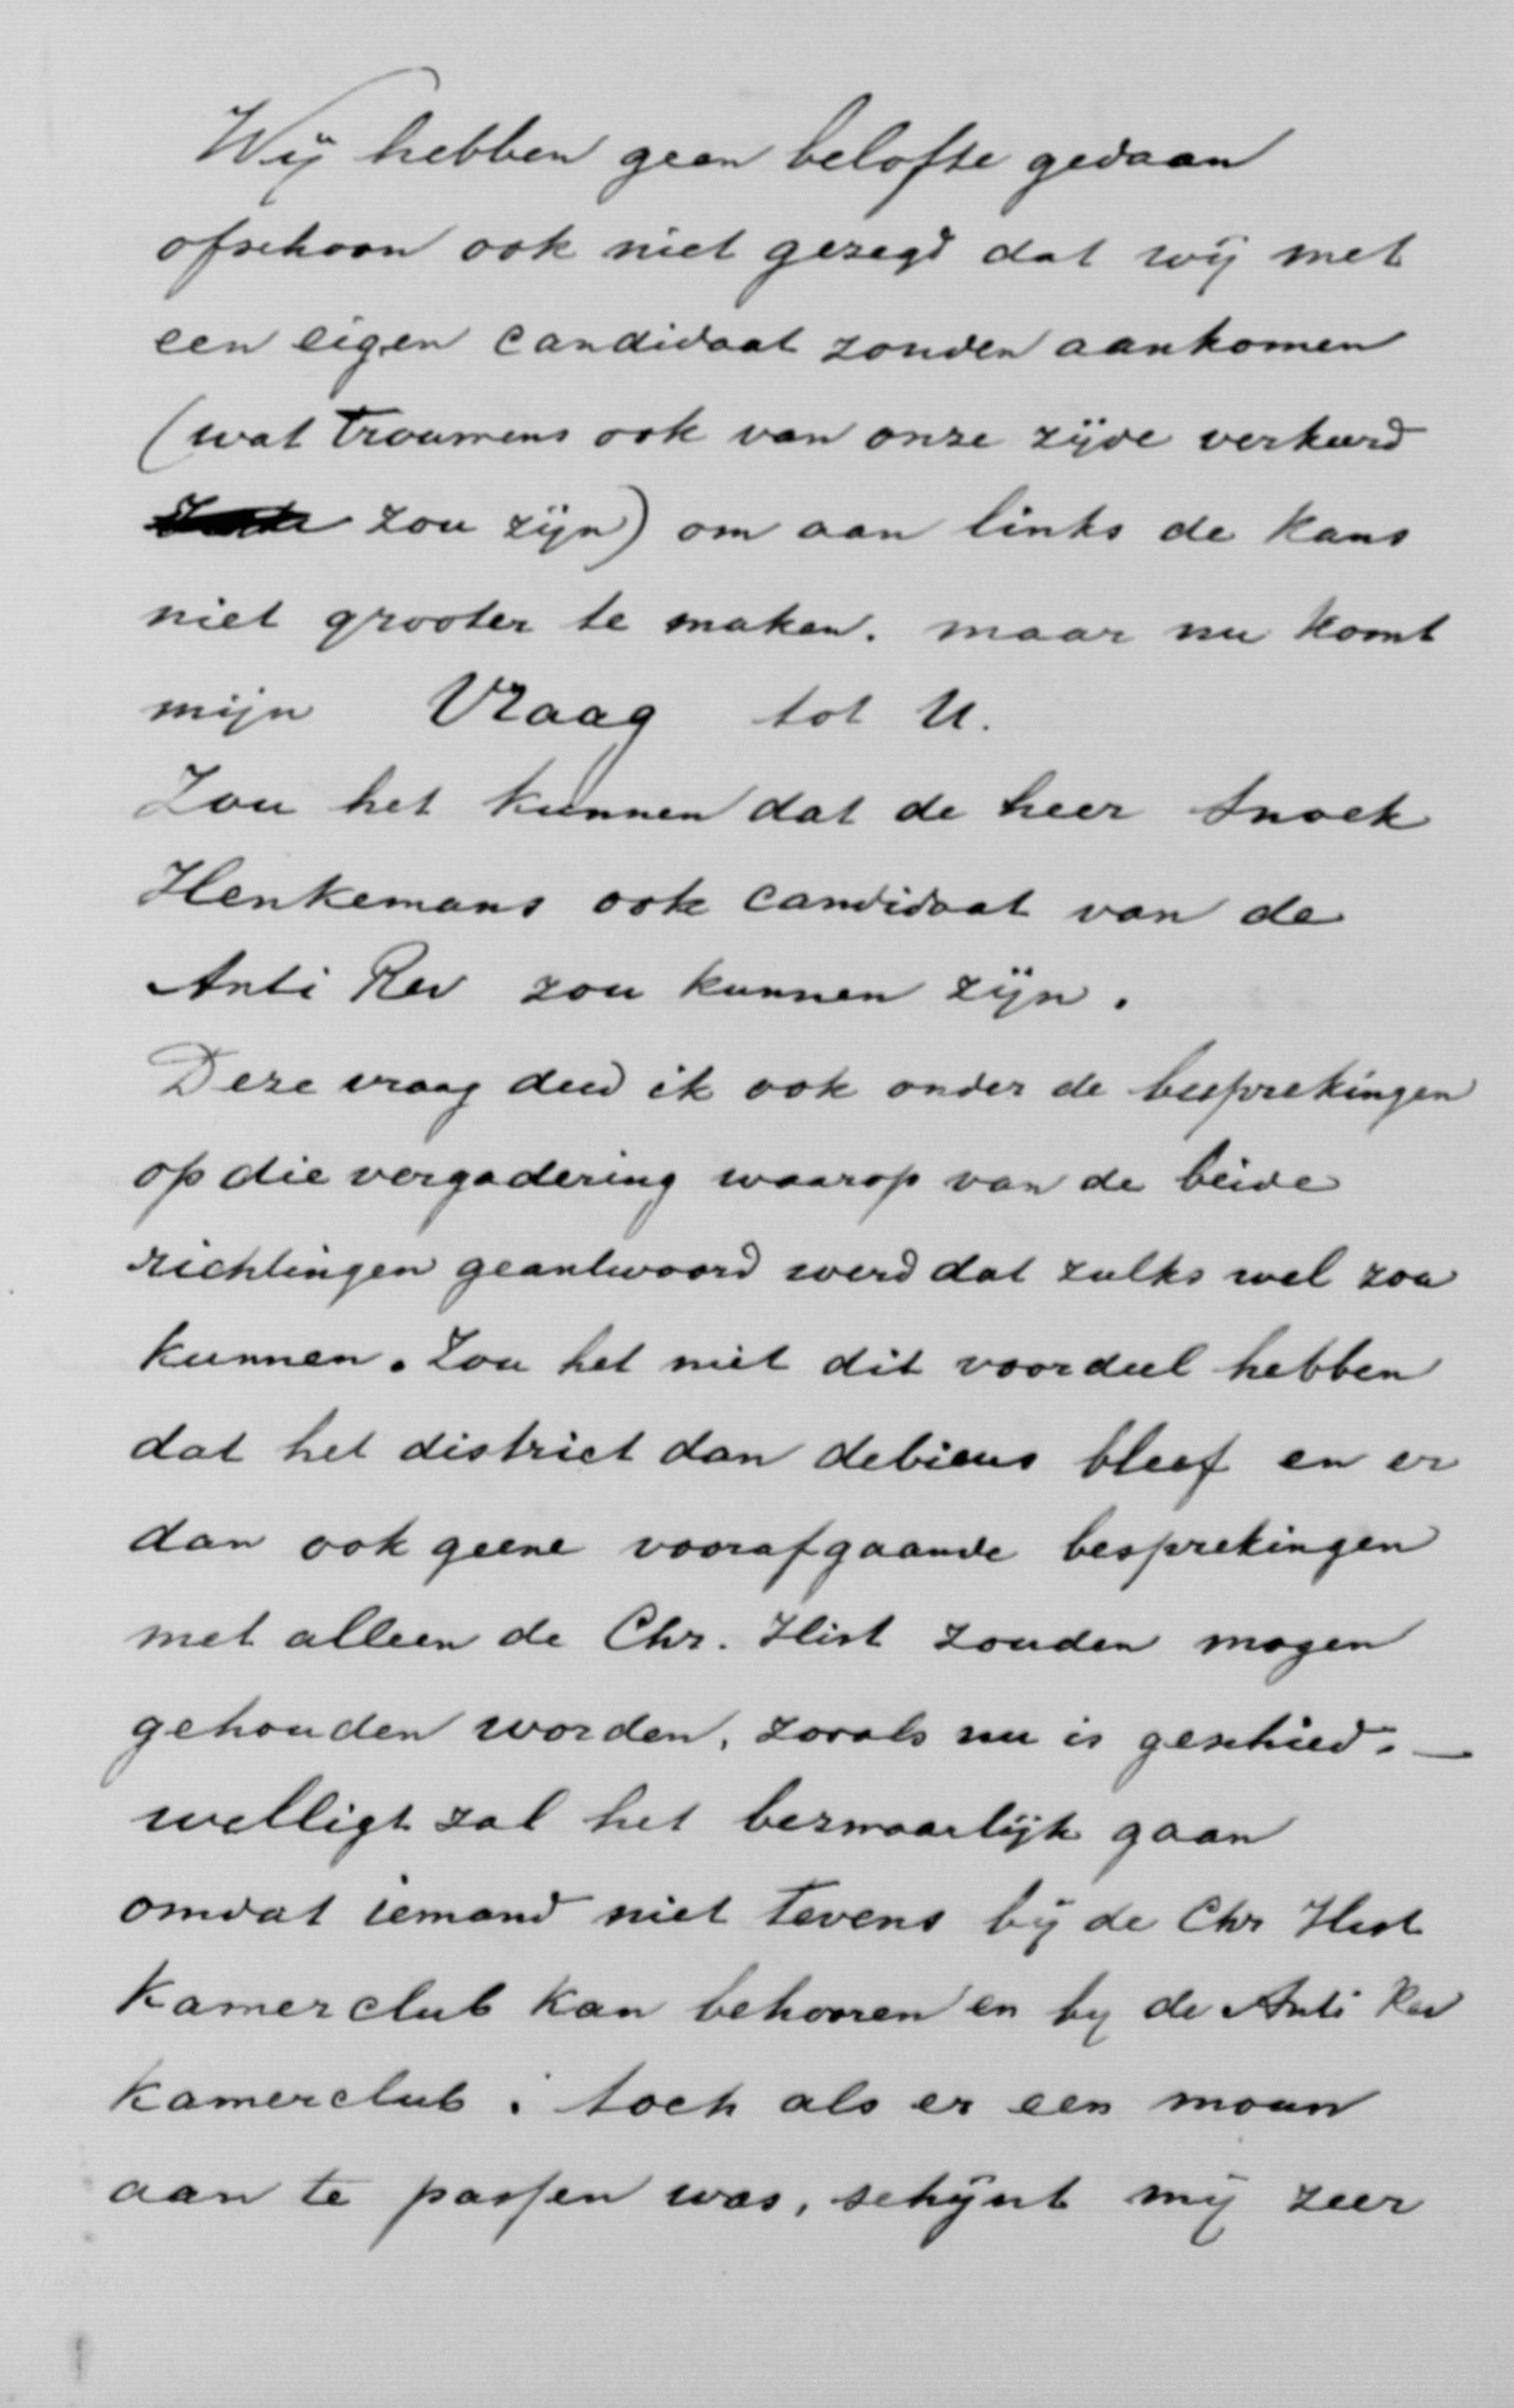 Wij hebben geen belofte gedaan
ofschoon ook niet gezegd dat wij met
een eigen candidaat zouden aankomen
(wat trouwens ook van onze zijde verkeerd
zou zijn) om aan links de kans
niet grooter te maken. maar nu komt
mijn Vraag tot U.
Zou het kunnen dat de heer Snoek
Henkemans ook candidaat van de
Anti Rev zou kunnen zijn.
Deze vraag deed ik ook onder de besprekingen
op die vergadering waarop van de beide
richtingen geantwoord werd dat zulks wel zou
kunnen. Zou het niet dit voordeel hebben
dat het district dan debieus bleef en er
dan ook geene voorafgaande besprekingen
met alleen de Chr. Hist zouden mogen
gehouden worden, zooals nu is geschied. —
welligt zal het bezwaarlijk gaan
omdat iemand niet tevens bij de Chr Hist
Kamerclub kan behooren en by de Anti Rev
Kamerclub; toch als er een mouw
aan te passen was, schijnt mij zeer